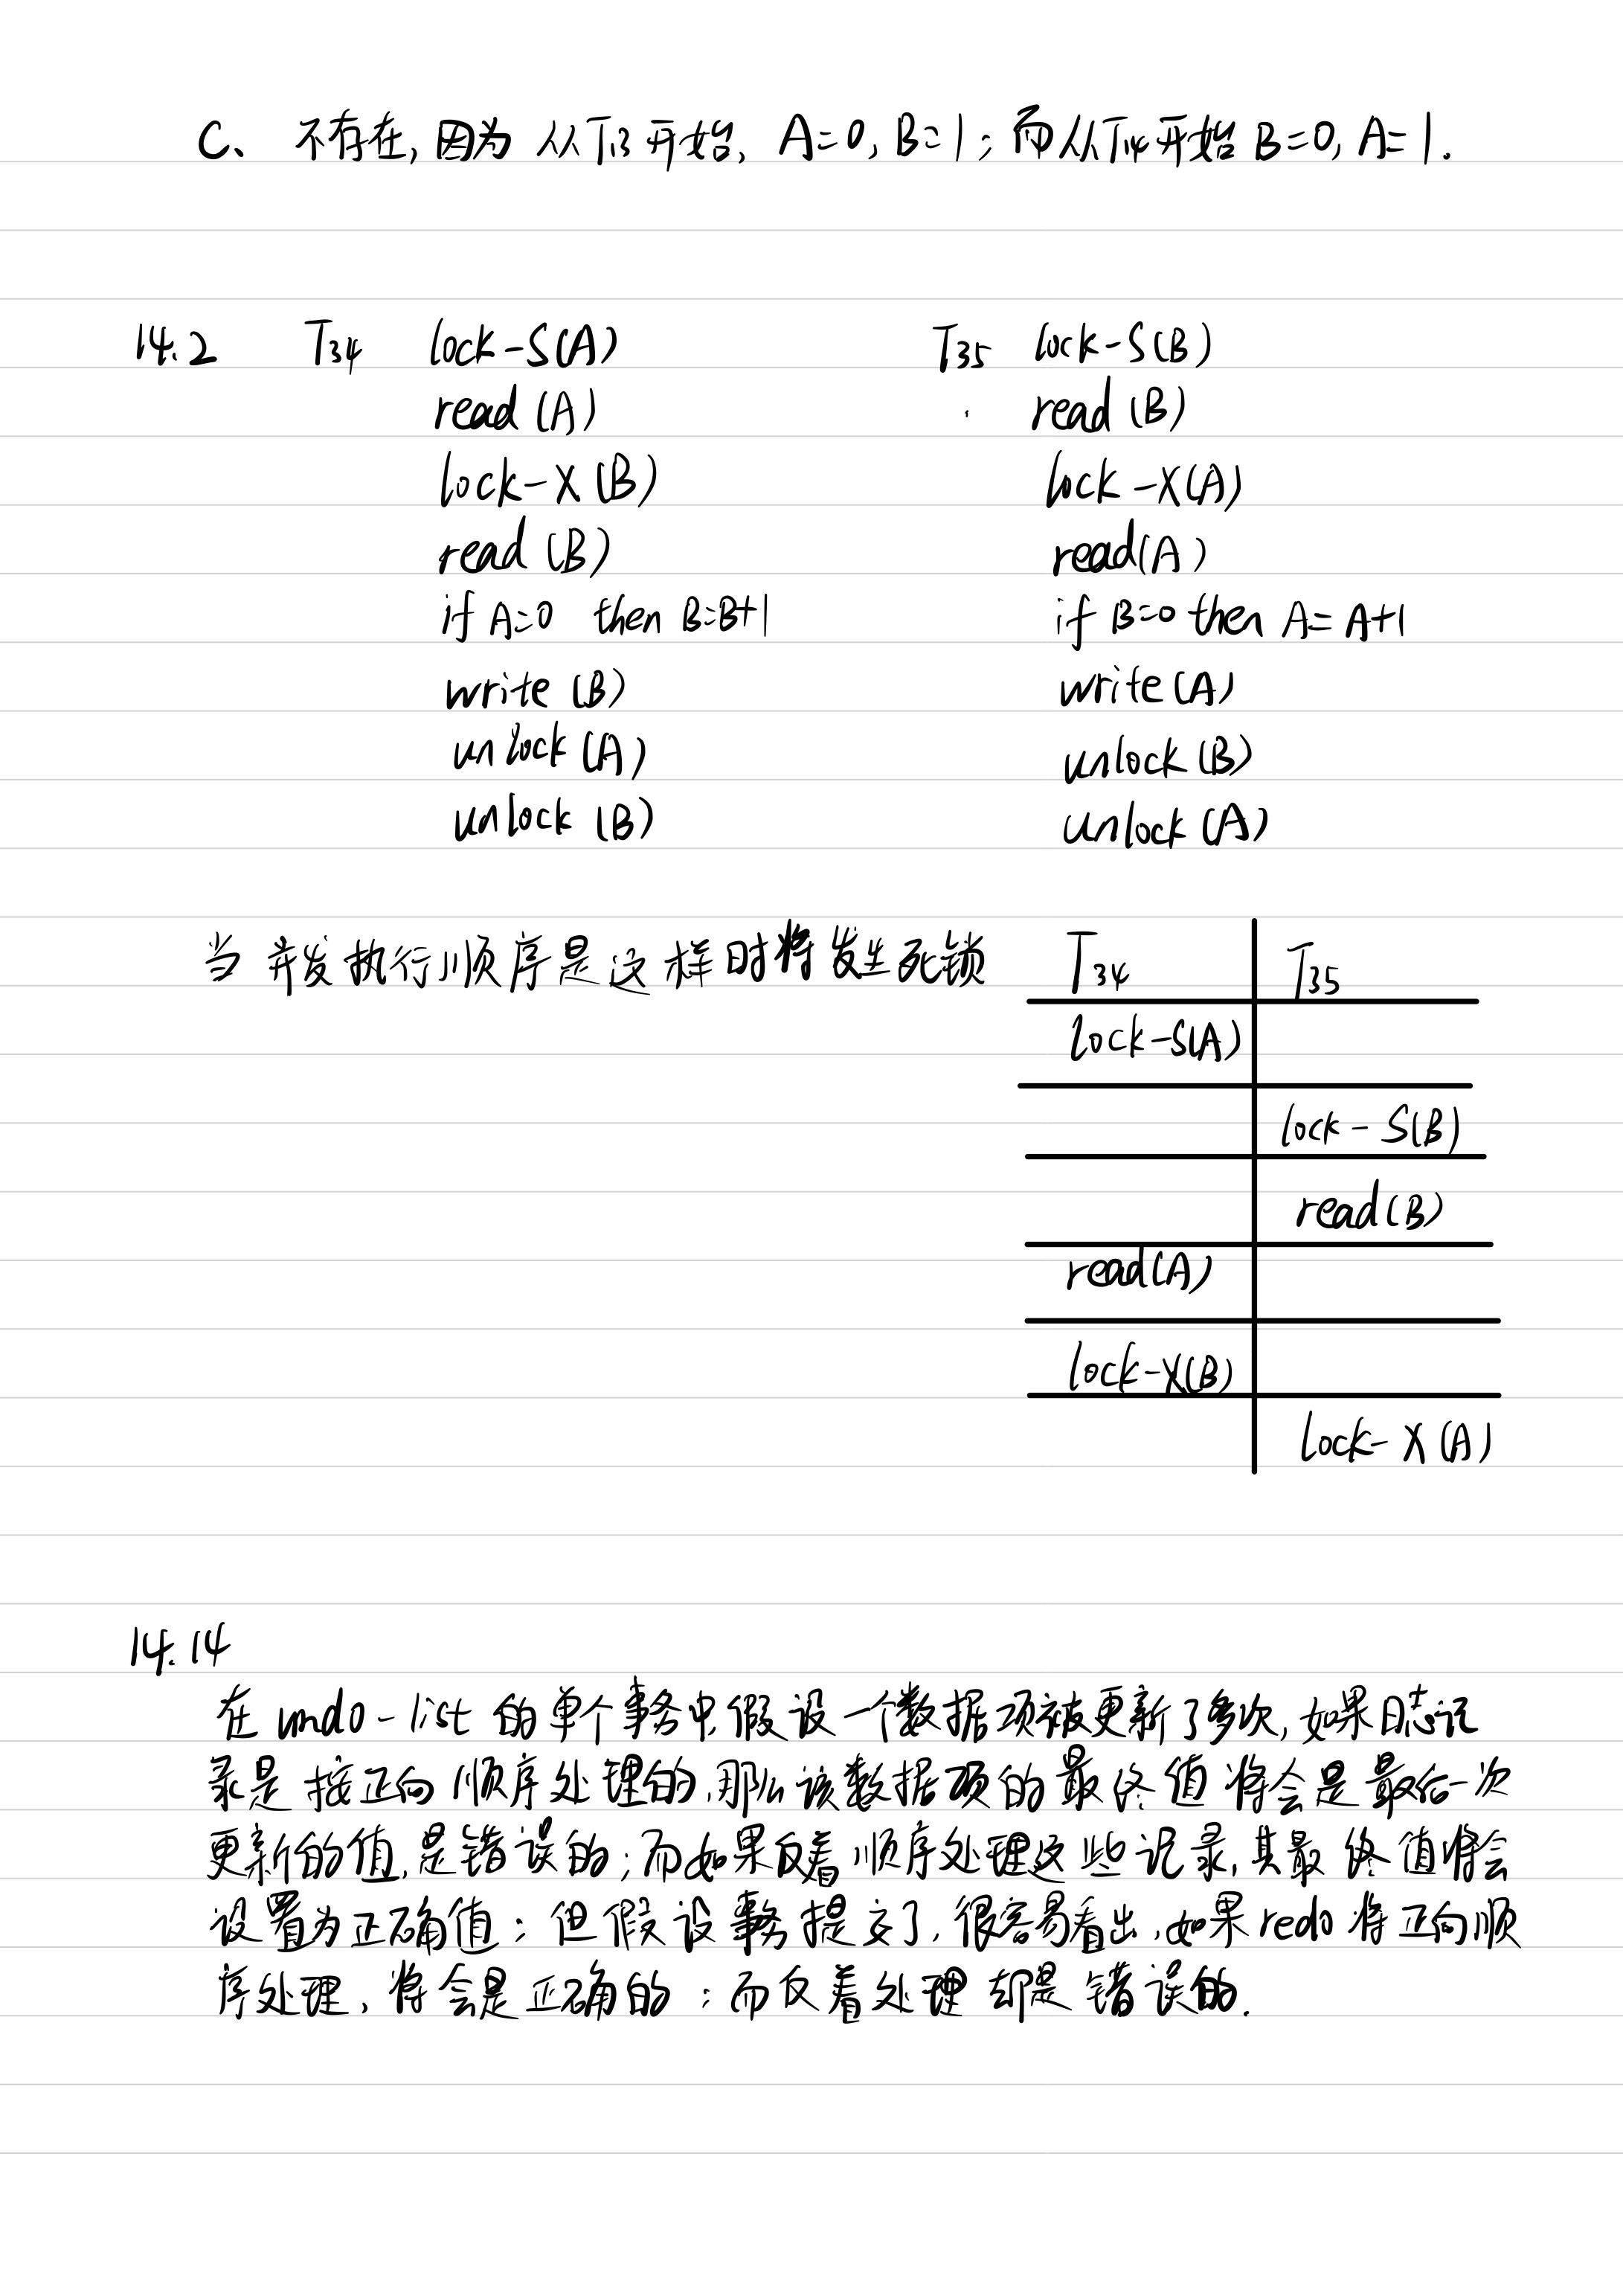 C、 不存在,因为 从T13开始, A=0, B=1; 而从T14开始 B=0, A=1.
14.2 T34 lock-S(A) T35 lock-S(B)
read(A) read(B)
lock-X(B) lock-X(A)
read(B) read(A)
if A=0 then B=B+1 if B=0 then A=A+1
write(B) write(A)
unlock(A) unlock(B)
unlock(B) unlock(A)
当并发执行顺序是这样时将发生死锁 T34 T35
lock-S(A)
lock-S(B)
read(B)
read(A)
lock-X(B)
lock-X(A)
14.14
在undo-list的单个事务中,假设一个数据项被更新了多次,如果日志记
录是按正向顺序处理的,那么该数据项的最终值将会是最后一次
更新的值,是错误的;而如果反着顺序处理这些记录,其最终值将会
设置为正确值;但假设事务提交了,很容易看出,如果redo将正向顺
序处理,将会是正确的;而反着处理却是错误的.